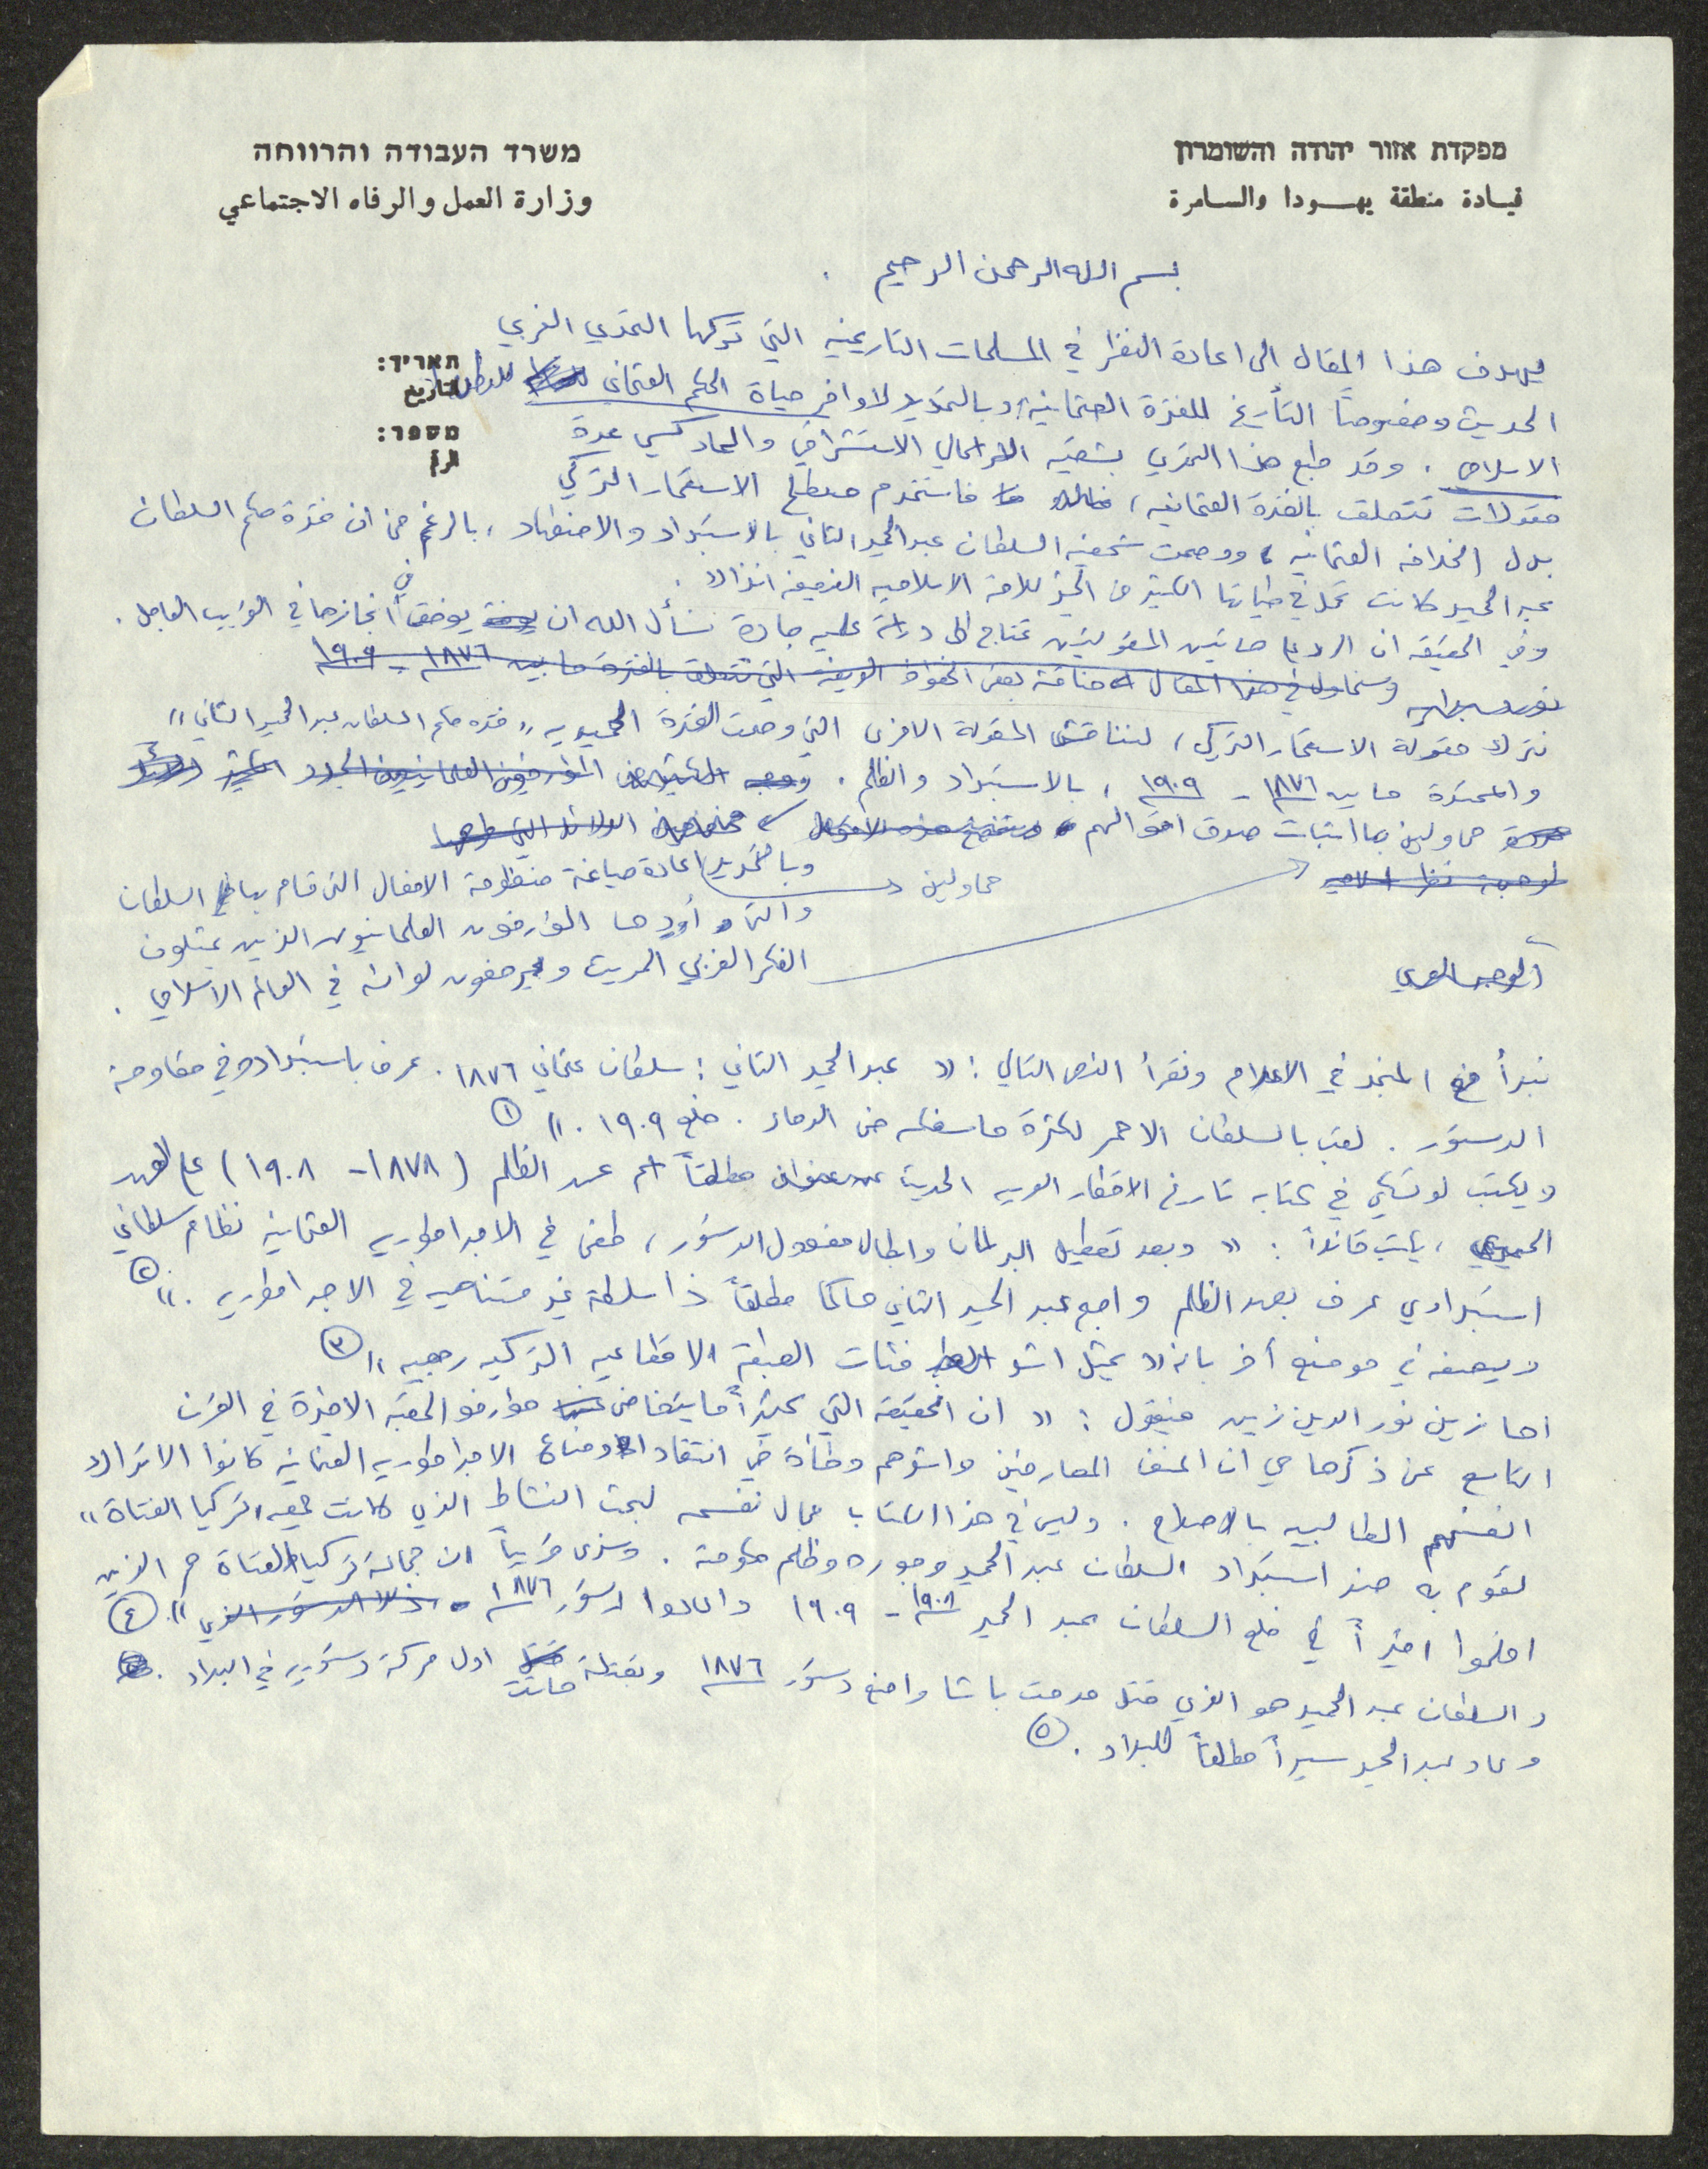 מפקדת אזור יהודה והשומרון
قيادة منطقة يهودا والسامرة
משרד העבודה והרווחה
وزارة العمل والرفاه الاجتماعي
תאריך:
التاريخ
מספר:
الرقم
بسم الله الرحمن الرحيم .
يهدف هذا المقال الى اعادة النظر في المسلمات التاريخية التي تركها التحدي الغربي
الحديث وخصوصاً التأريخ للفترة العثمانية وبالتحديد لاواخر حياة الحكم العثماني
الاسلامي . وقد طبع هذا التحدي بشقيه الرأسمالي الاستشراقي والماركسي عدة
مقولات تتعلق بالفترة العثمانية ، فاستخدم مصطلح الاستعمار التركي
بدل الخلافة العثمانية ، ووصمت شخصية السلطان عبد الحميد الثاني بالاستبداد والاضطهاد ، بالرغم من ان فترة حكم السلطان
عبد الحميد كانت تحمل في طياتها الكثير من الخير للامة الاسلامية الضعيفة انذاك .
وفي الحقيقة ان الرد على هاتين المقولتين تحتاج الى دراسة علمية جادة نسأل الله ان يوفقنا في انجازها في القريب العاجل .
وسنحاول في هذا المقال مناقشة بعض الحقائق التي تتعلق بالفترة ما بين ١٨٧٦ - ١٩٠٩
نترك مقولة الاستعمار التركي ، لنناقش المقولة الاخرى التي وصمت الفترة الحميدية " فترة حكم السلطان عبد الحميد الثاني "
والممتدة ما بين ١٨٧٦ - ١٩٠٩ ، بالاستبداد والظلم . المؤرخين العلمانيين الجدد
محاولين بها اثبات صدق اقوالهم
محاولين وبالتحديد اعادة صياغة منظومة الافعال التي قام بها السلطان
والتي أوردها المؤرخون العلمانيون الذين يمثلون
الفكر الغربي الحديث ويرفعون لوائه في العالم الاسلامي .
نبدأ مع المنجد في الاعلام ونقرأ النص التالي : " عبد الحميد الثاني : سلطان عثماني ١٨٧٦ . عرف باستبداده في مقاومة
الدستور . لقب بالسلطان الاحمر لكثرة ما سفك من الدماء . خلع ١٩٠٩ . " ①
ويكتب لوتسكي في كتابه تاريخ الاقطار العربية الحديث مطلقاً اسم عهد الظلم ( ١٨٧٨ - ١٩٠٨ ) على العهد
الحميدي ، يكتب قائلاً : " وبعد تعطيل البرلمان وابطال مفعول الدستور ، طغى في الامبراطورية العثمانية نظام سلطاني
استبدادي عرف بعهد الظلم واصبح عبد الحميد الثاني حاكما مطلقاً ذا سلطة غير متناهية في الامبراطورية . " ②
ويصفه في موضع آخر بانه " يمثل اشد فئات الطبقة الاقطاعية التركية رجعية " ③
اما زين نور الدين زين فيقول : " ان الحقيقة التي كثيراً ما يتغاضى مؤرخو الحقبة الاخيرة في القرن
التاسع عن ذكرها هي ان اعنف المعارضين واشدهم وطأة في انتقاد اوضاع الامبراطورية العثمانية كانوا الاتراك
انفسهم المطالبين بالاصلاح . وليس في هذا الكتاب مجال نفسه لبحث النشاط الذي كانت جمعية تركيا الفتاة "
تقوم به ضد استبداد السلطان عبد الحميد وجوره وظلم حكومته . وسنرى قريباً ان جماعة تركيا الفتاة هم الذين
افلحوا اخيراً في خلع السلطان عبد الحميد ١٩٠٨ - ١٩٠٩ واعادوا دستور ١٨٧٦ " . ④
والسلطان عبد الحميد هو الذي قتل مدحت باشا واضع دستور ١٨٧٦ وبقتله ماتت اول حركة دستورية في البلاد .
وعاد عبد الحميد سيداً مطلقاً للبلاد . ⑤